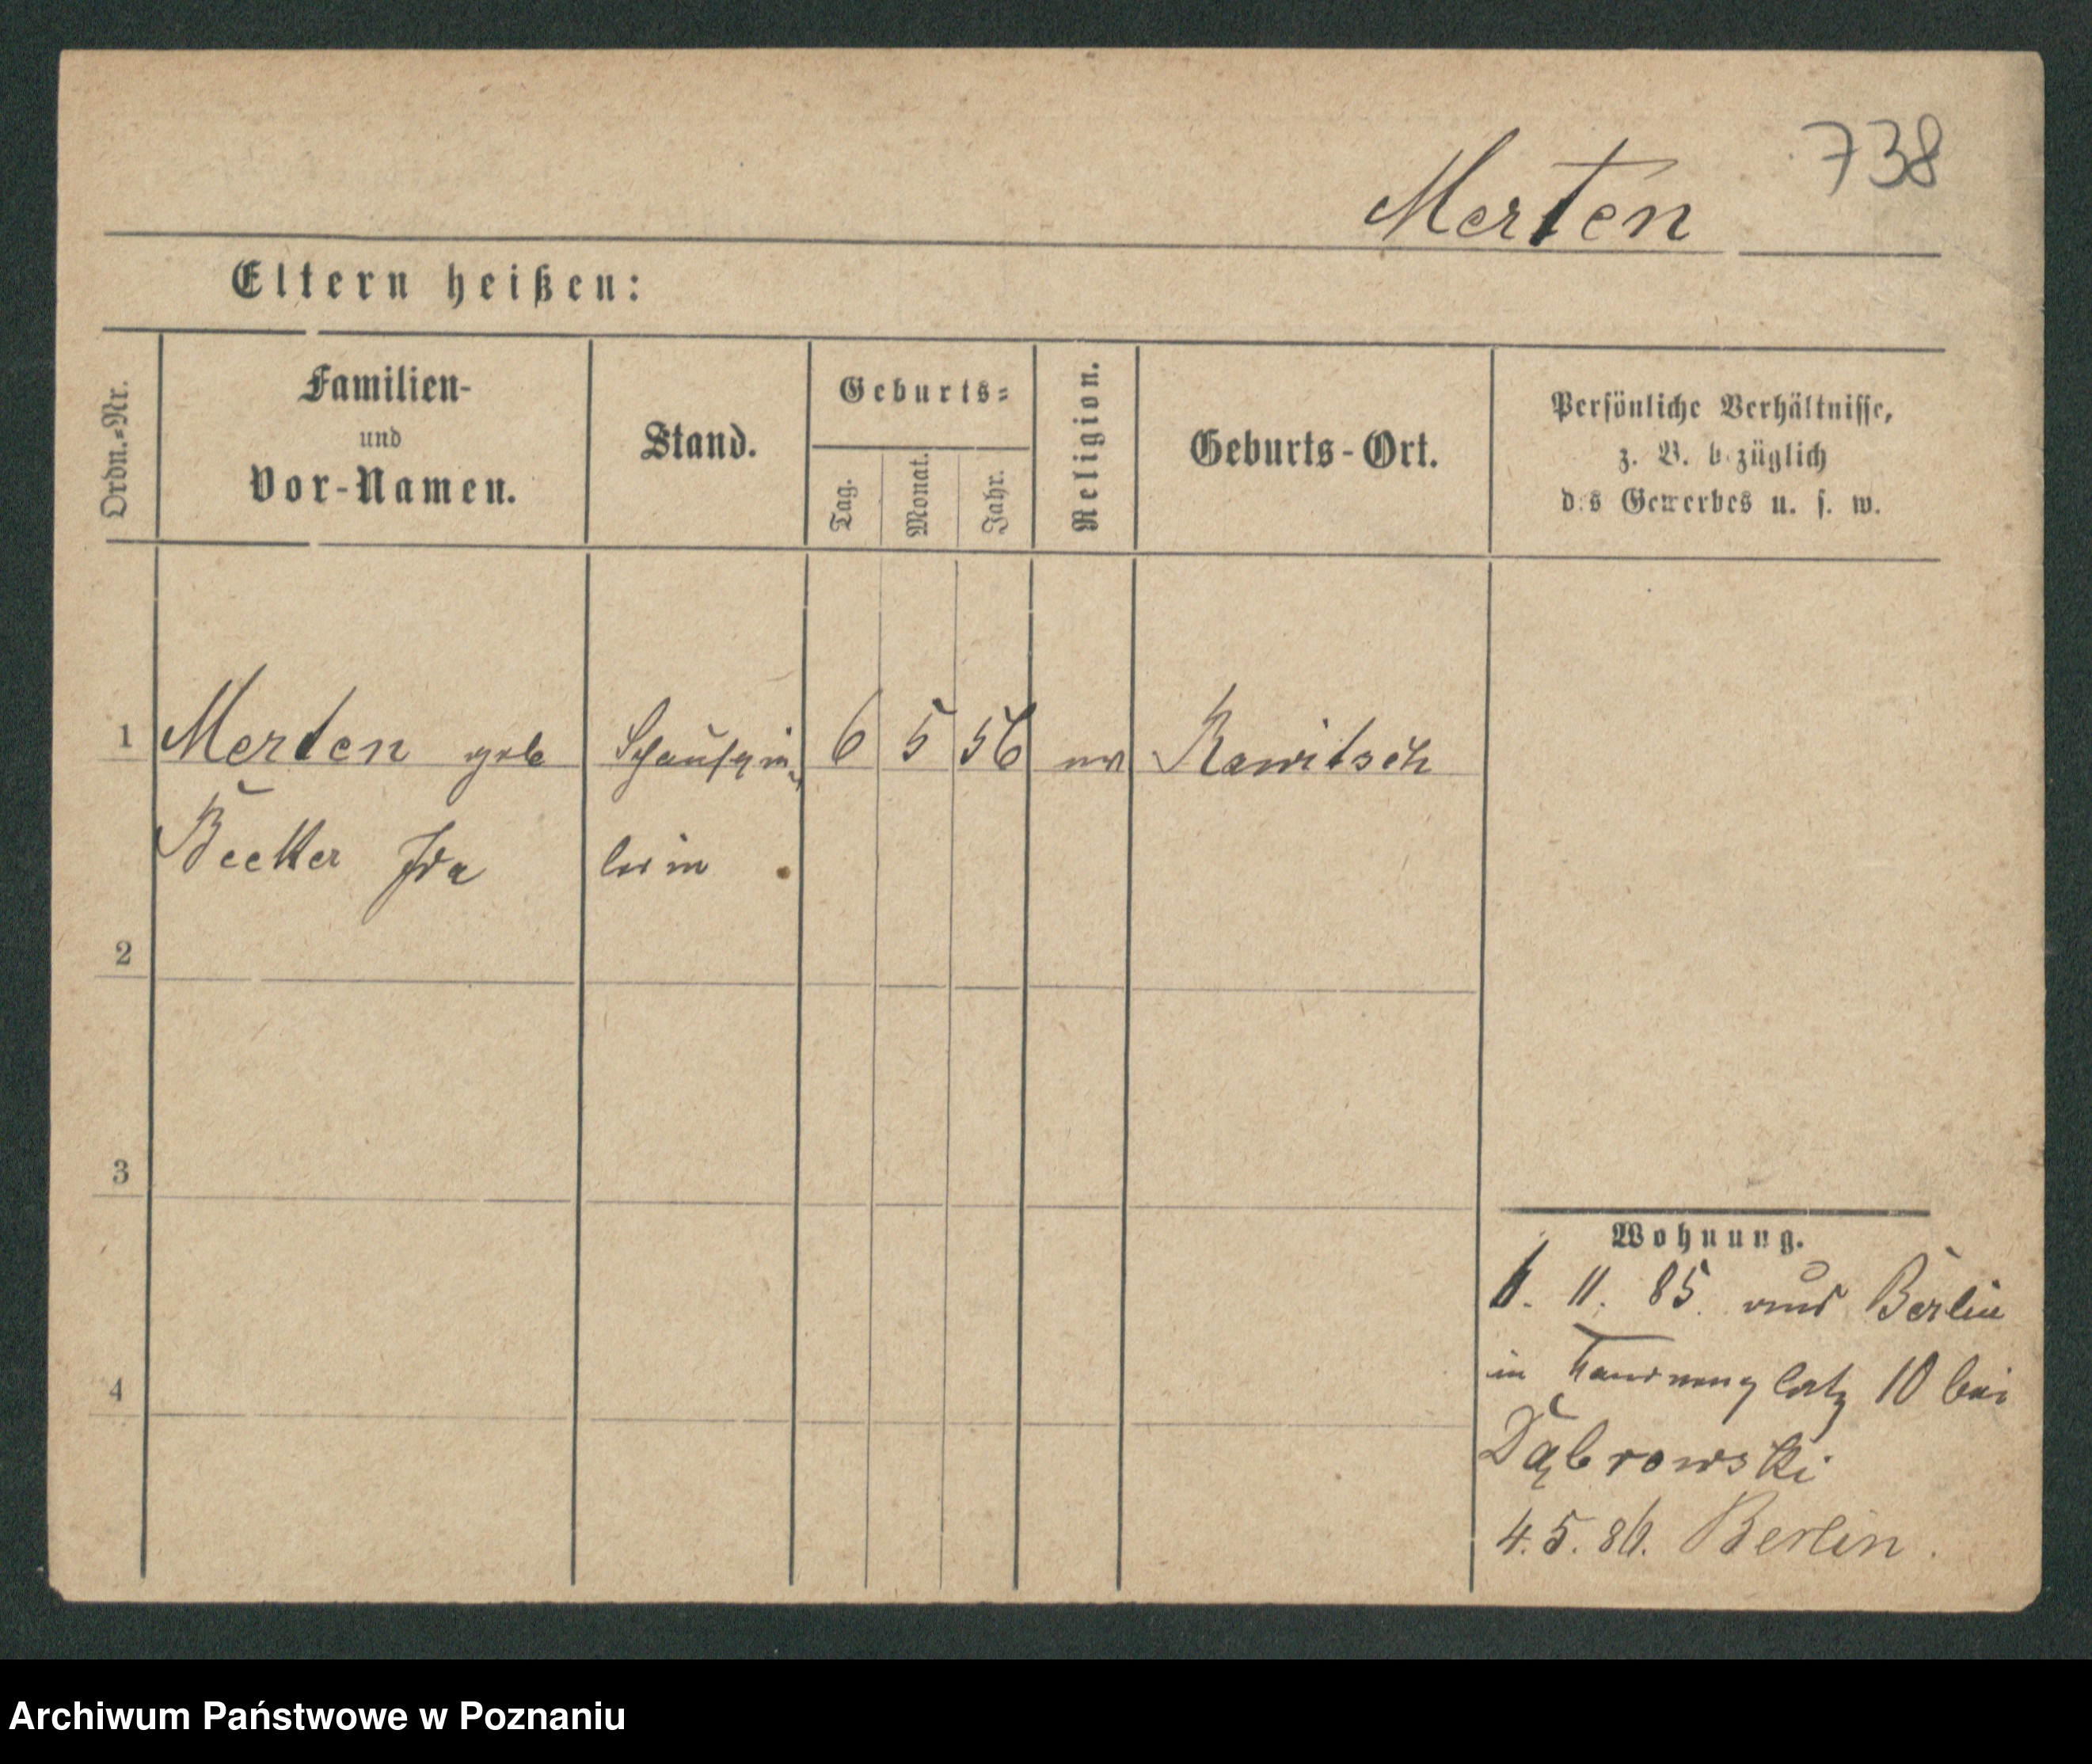 738
Merten
Eltern heißen:
Ordn.-Nr.
Familien-
und
Vor-Namen.
Stand.
Geburts-
Tag.
Monat.
Jahr.
Religion.
Geburts-Ort.
Persönliche Verhältnisse,
z. B. bezüglich
des Gewerbes u. s. w.
1 Merten geb Schauspie- 6 5 56 ev Rawitsch
Becker Ida lerin
2
3
4
Wohnung.
11. 85. aus Berlin
in 10 bei
Dąbrowski
4. 5. 86. Berlin.
Archiwum Państwowe w Poznaniu